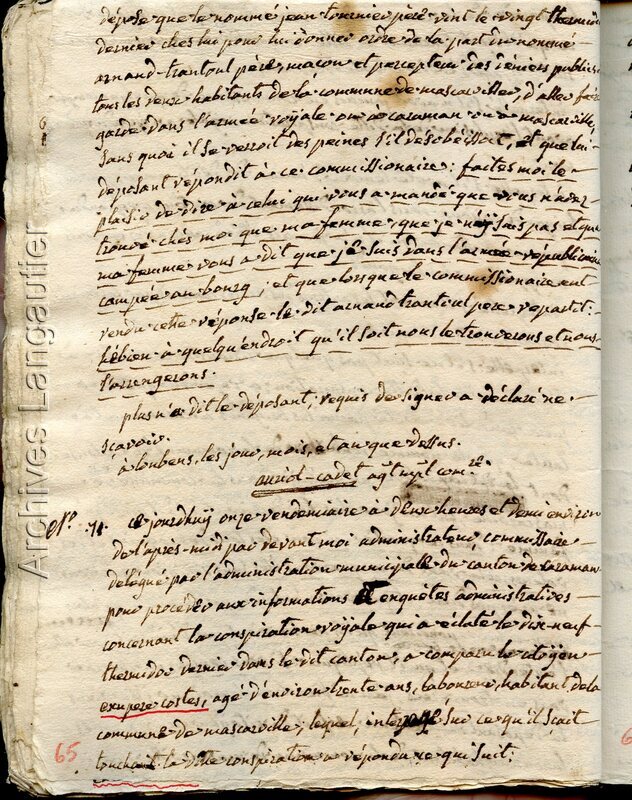 dépose que le nommé jean tournier père vint le vingt thermidor
dernier ches lui pour lui donner ordre de la part du nommé
arnaud trantoul père, maçon et percepteur des deniers publics,
tous les deux habitants de la commune de mascarville, d'aller faire
garde dans l'armée royale ou à caraman ou à mascarville,
sans quoi il se verroit des peines s'il désobéissoit, et que lui
déposant répondit à ce commissionaire: faites moi le
plaisir de dire à celui qui vous a mandé que vous n'avez
trouvé chés moi que ma femme, que je n'y suis pas et que
ma femme vous a dit que je suis dans l'armée républicaine
campée au bourg; et que lorsque le commissionaire eut
rendu cette réponse le dit arnaud trantoul pere repartit:
hébien à quelqu'endroit qu'il soit nous le trouverons et nous
l'arrengerons.
plus n'a dit le déposant; requis de signer a déclaré ne
scavoir.
à loubens, les jour, mois, et an que dessus.
auriol-cadet agt mpl comre.
N° 71. Ce jourdhuy onze vendemiaire à deux heures et demi environ
de l'après-midi par devant moi administrateur commissaire
délégué par l'administration municipale du canton de Caraman
pour procéder aux informations et enquêtes administratives
concernant la conspiration royale qui a éclaté le dix-neuf
thermidor dernier dans le dit canton, a comparu le citoyen
exupere costes, agé d'environ trente ans, laboureur, habitant de la
commune de mascarville; lequel, interrogé sur ce qu'il sçait
touchant la dite conspiration a répondu ce qui suit:
65
Archives Langautier